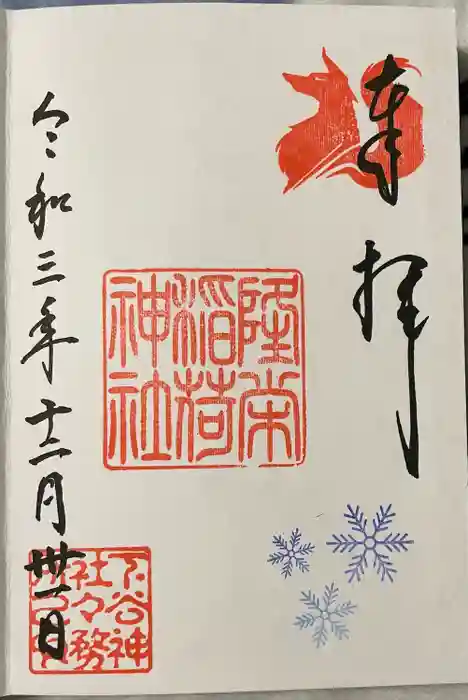 奉拝
隆栄
稲荷
神社
令和三年十二月卅一日
下谷神
社々務